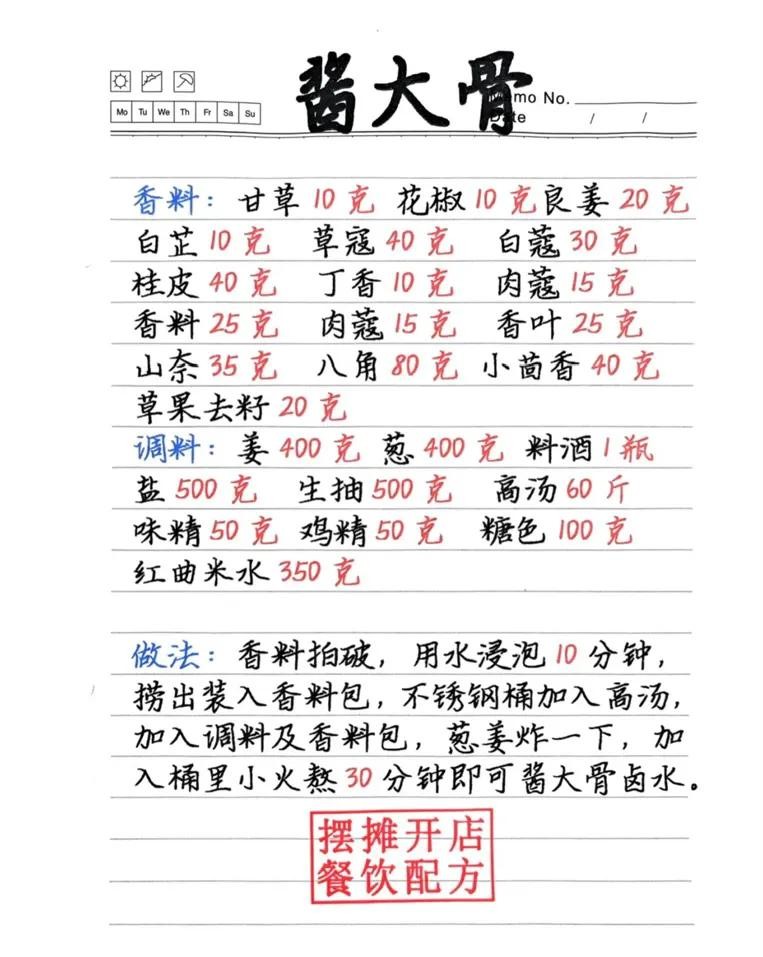 酱大骨
Memo No.
Mo Tu We Th Fr Sa Su
Date / /
香料：甘草10克 花椒10克良姜20克
白芷10克 草寇40克 白蔻30克
桂皮40克 丁香10克 肉蔻15克
香料25克 肉蔻15克 香叶25克
山奈35克 八角80克 小茴香40克
草果去籽20克
调料：姜400克 葱400克 料酒1瓶
盐500克 生抽500克 高汤60斤
味精50克 鸡精50克 糖色100克
红曲米水350克
做法：香料拍破，用水浸泡10分钟，
捞出装入香料包，不锈钢桶加入高汤，
加入调料及香料包，葱姜炸一下，加
入桶里小火熬30分钟即可酱大骨卤水。
摆摊开店
餐饮配方